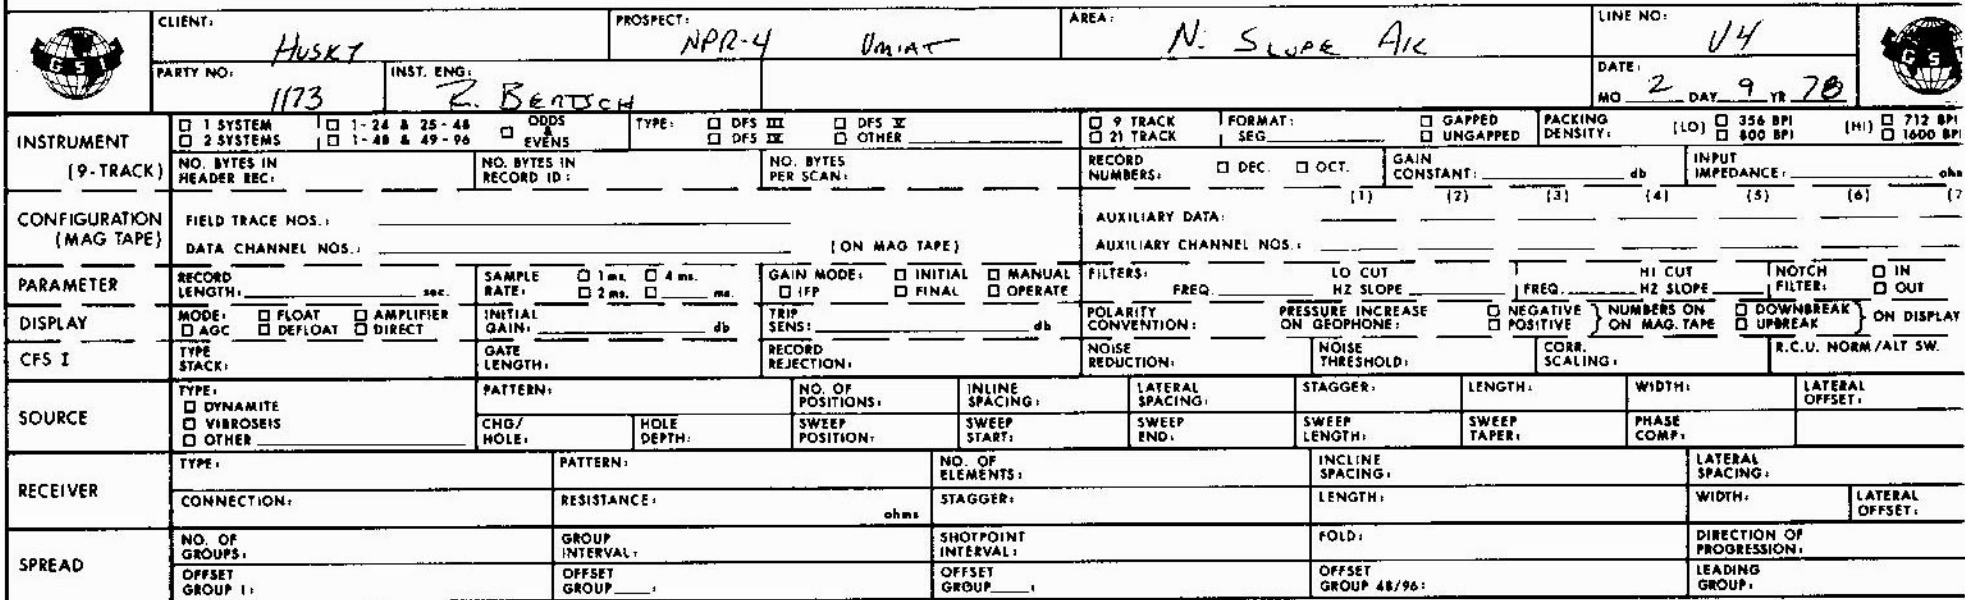 CLIENT: HUSKY PROSPECT: NPR-4 UMIAT AREA: N. SLOPE AK LINE NO: V4
GSI GS
PARTY NO: 1173 INST. ENG: R. BERTSCH DATE: MO 2 DAY 9 YR 78
INSTRUMENT (9-TRACK)
☐ 1 SYSTEM ☐ 1-24 & 25-48 ☐ ODDS & EVENS TYPE: ☐ DFS III ☐ DFS V ☐ 9 TRACK FORMAT: ☐ GAPPED PACKING DENSITY: (LO) ☐ 356 BPI (HI) ☐ 712 BPI
☐ 2 SYSTEMS ☐ 1-48 & 49-96 ☐ DFS IV ☐ OTHER ____ ☐ 21 TRACK SEG ____ ☐ UNGAPPED ☐ 800 BPI ☐ 1600 BPI
NO. BYTES IN HEADER REC: NO. BYTES IN RECORD ID: NO. BYTES PER SCAN: RECORD NUMBERS: ☐ DEC. ☐ OCT. GAIN CONSTANT: ____ db INPUT IMPEDANCE: ____ ohm
CONFIGURATION (MAG TAPE)
(1) (2) (3) (4) (5) (6) (7
FIELD TRACE NOS.: ____ AUXILIARY DATA:
DATA CHANNEL NOS.: ____ (ON MAG TAPE) AUXILIARY CHANNEL NOS.:
PARAMETER
RECORD LENGTH: ____ sec. SAMPLE RATE: ☐ 1 ms. ☐ 4 ms. ☐ 2 ms. ☐ ____ ms. GAIN MODE: ☐ INITIAL ☐ MANUAL ☐ IFP ☐ FINAL ☐ OPERATE FILTERS: LO CUT FREQ. ____ HZ SLOPE ____ HI CUT FREQ. ____ HZ SLOPE ____ NOTCH FILTER: ☐ IN ☐ OUT
DISPLAY
MODE: ☐ FLOAT ☐ AMPLIFIER ☐ AGC ☐ DEFLOAT ☐ DIRECT INITIAL GAIN: ____ db TRIP SENS: ____ db POLARITY CONVENTION: PRESSURE INCREASE ON GEOPHONE: ☐ NEGATIVE ☐ POSITIVE } NUMBERS ON ON MAG. TAPE ☐ DOWNBREAK ☐ UPBREAK } ON DISPLAY
CFS I
TYPE STACK: GATE LENGTH: RECORD REJECTION: NOISE REDUCTION: NOISE THRESHOLD: CORR. SCALING: R.C.U. NORM/ALT SW.
SOURCE
TYPE: ☐ DYNAMITE ☐ VIBROSEIS ☐ OTHER ____
PATTERN: NO. OF POSITIONS: INLINE SPACING: LATERAL SPACING: STAGGER: LENGTH: WIDTH: LATERAL OFFSET:
CHG/HOLE: HOLE DEPTH: SWEEP POSITION: SWEEP START: SWEEP END: SWEEP LENGTH: SWEEP TAPER: PHASE COMP:
RECEIVER
TYPE: PATTERN: NO. OF ELEMENTS: INCLINE SPACING: LATERAL SPACING:
CONNECTION: RESISTANCE: ohms STAGGER: LENGTH: WIDTH: LATERAL OFFSET:
SPREAD
NO. OF GROUPS: GROUP INTERVAL: SHOTPOINT INTERVAL: FOLD: DIRECTION OF PROGRESSION:
OFFSET GROUP 1: OFFSET GROUP ____: OFFSET GROUP ____: OFFSET GROUP 48/96: LEADING GROUP: